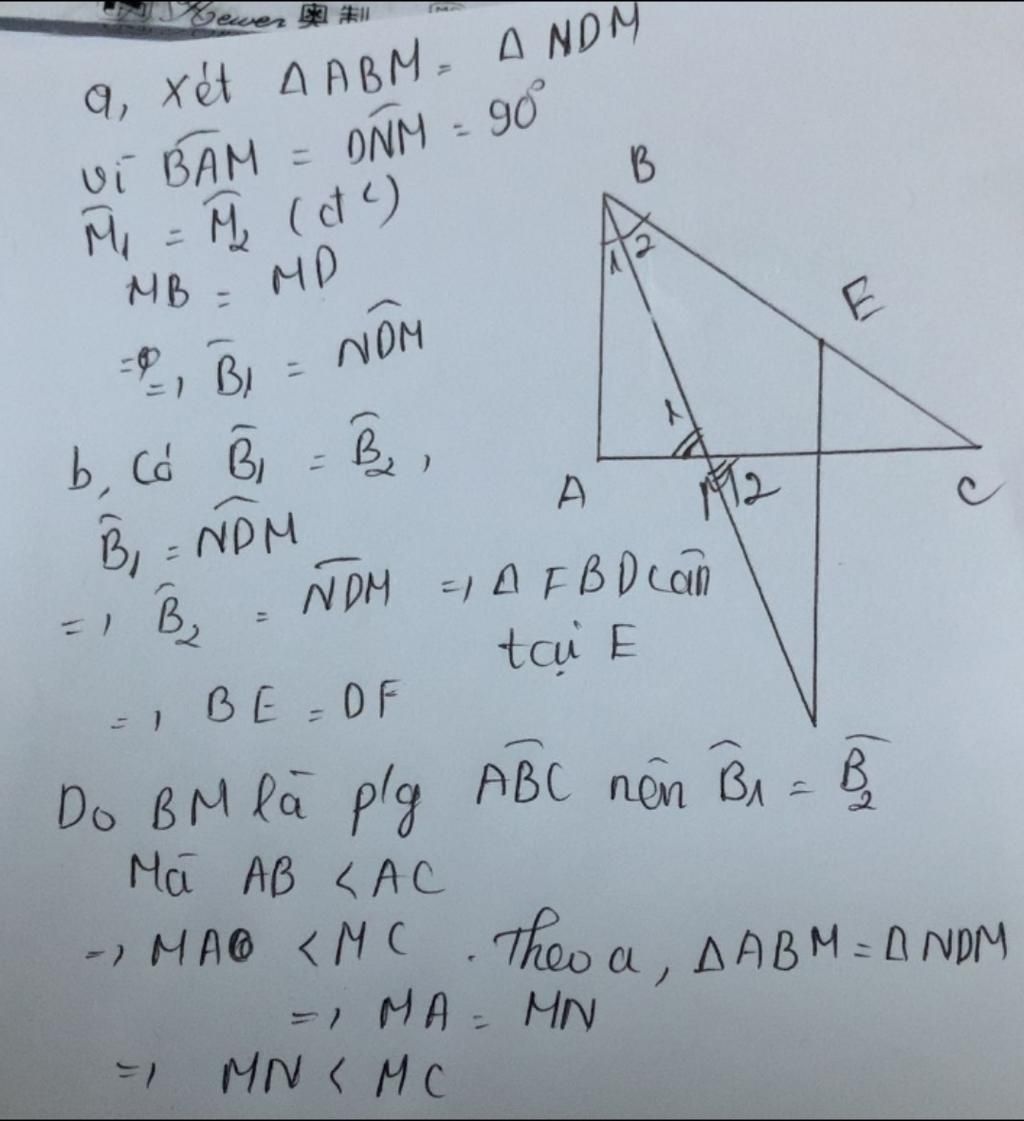 Kewer 奥制
a, xét Δ ABM = Δ NDM
vì BAM = DNM = 90°
M1 = M2 (đ c)
MB = MD
=> B1 = NDM
b, Có B1 = B2,
B1 = NDM
=> B2 = NDM => Δ FBD cân
tại E
=> BE = DF
Do BM là p/g ABC nên B1 = B2
Mà AB < AC
=> MA < MC . Theo a, Δ ABM = Δ NDM
=> MA = MN
=> MN < MC
B
1 2
E
1
A
M 2
C